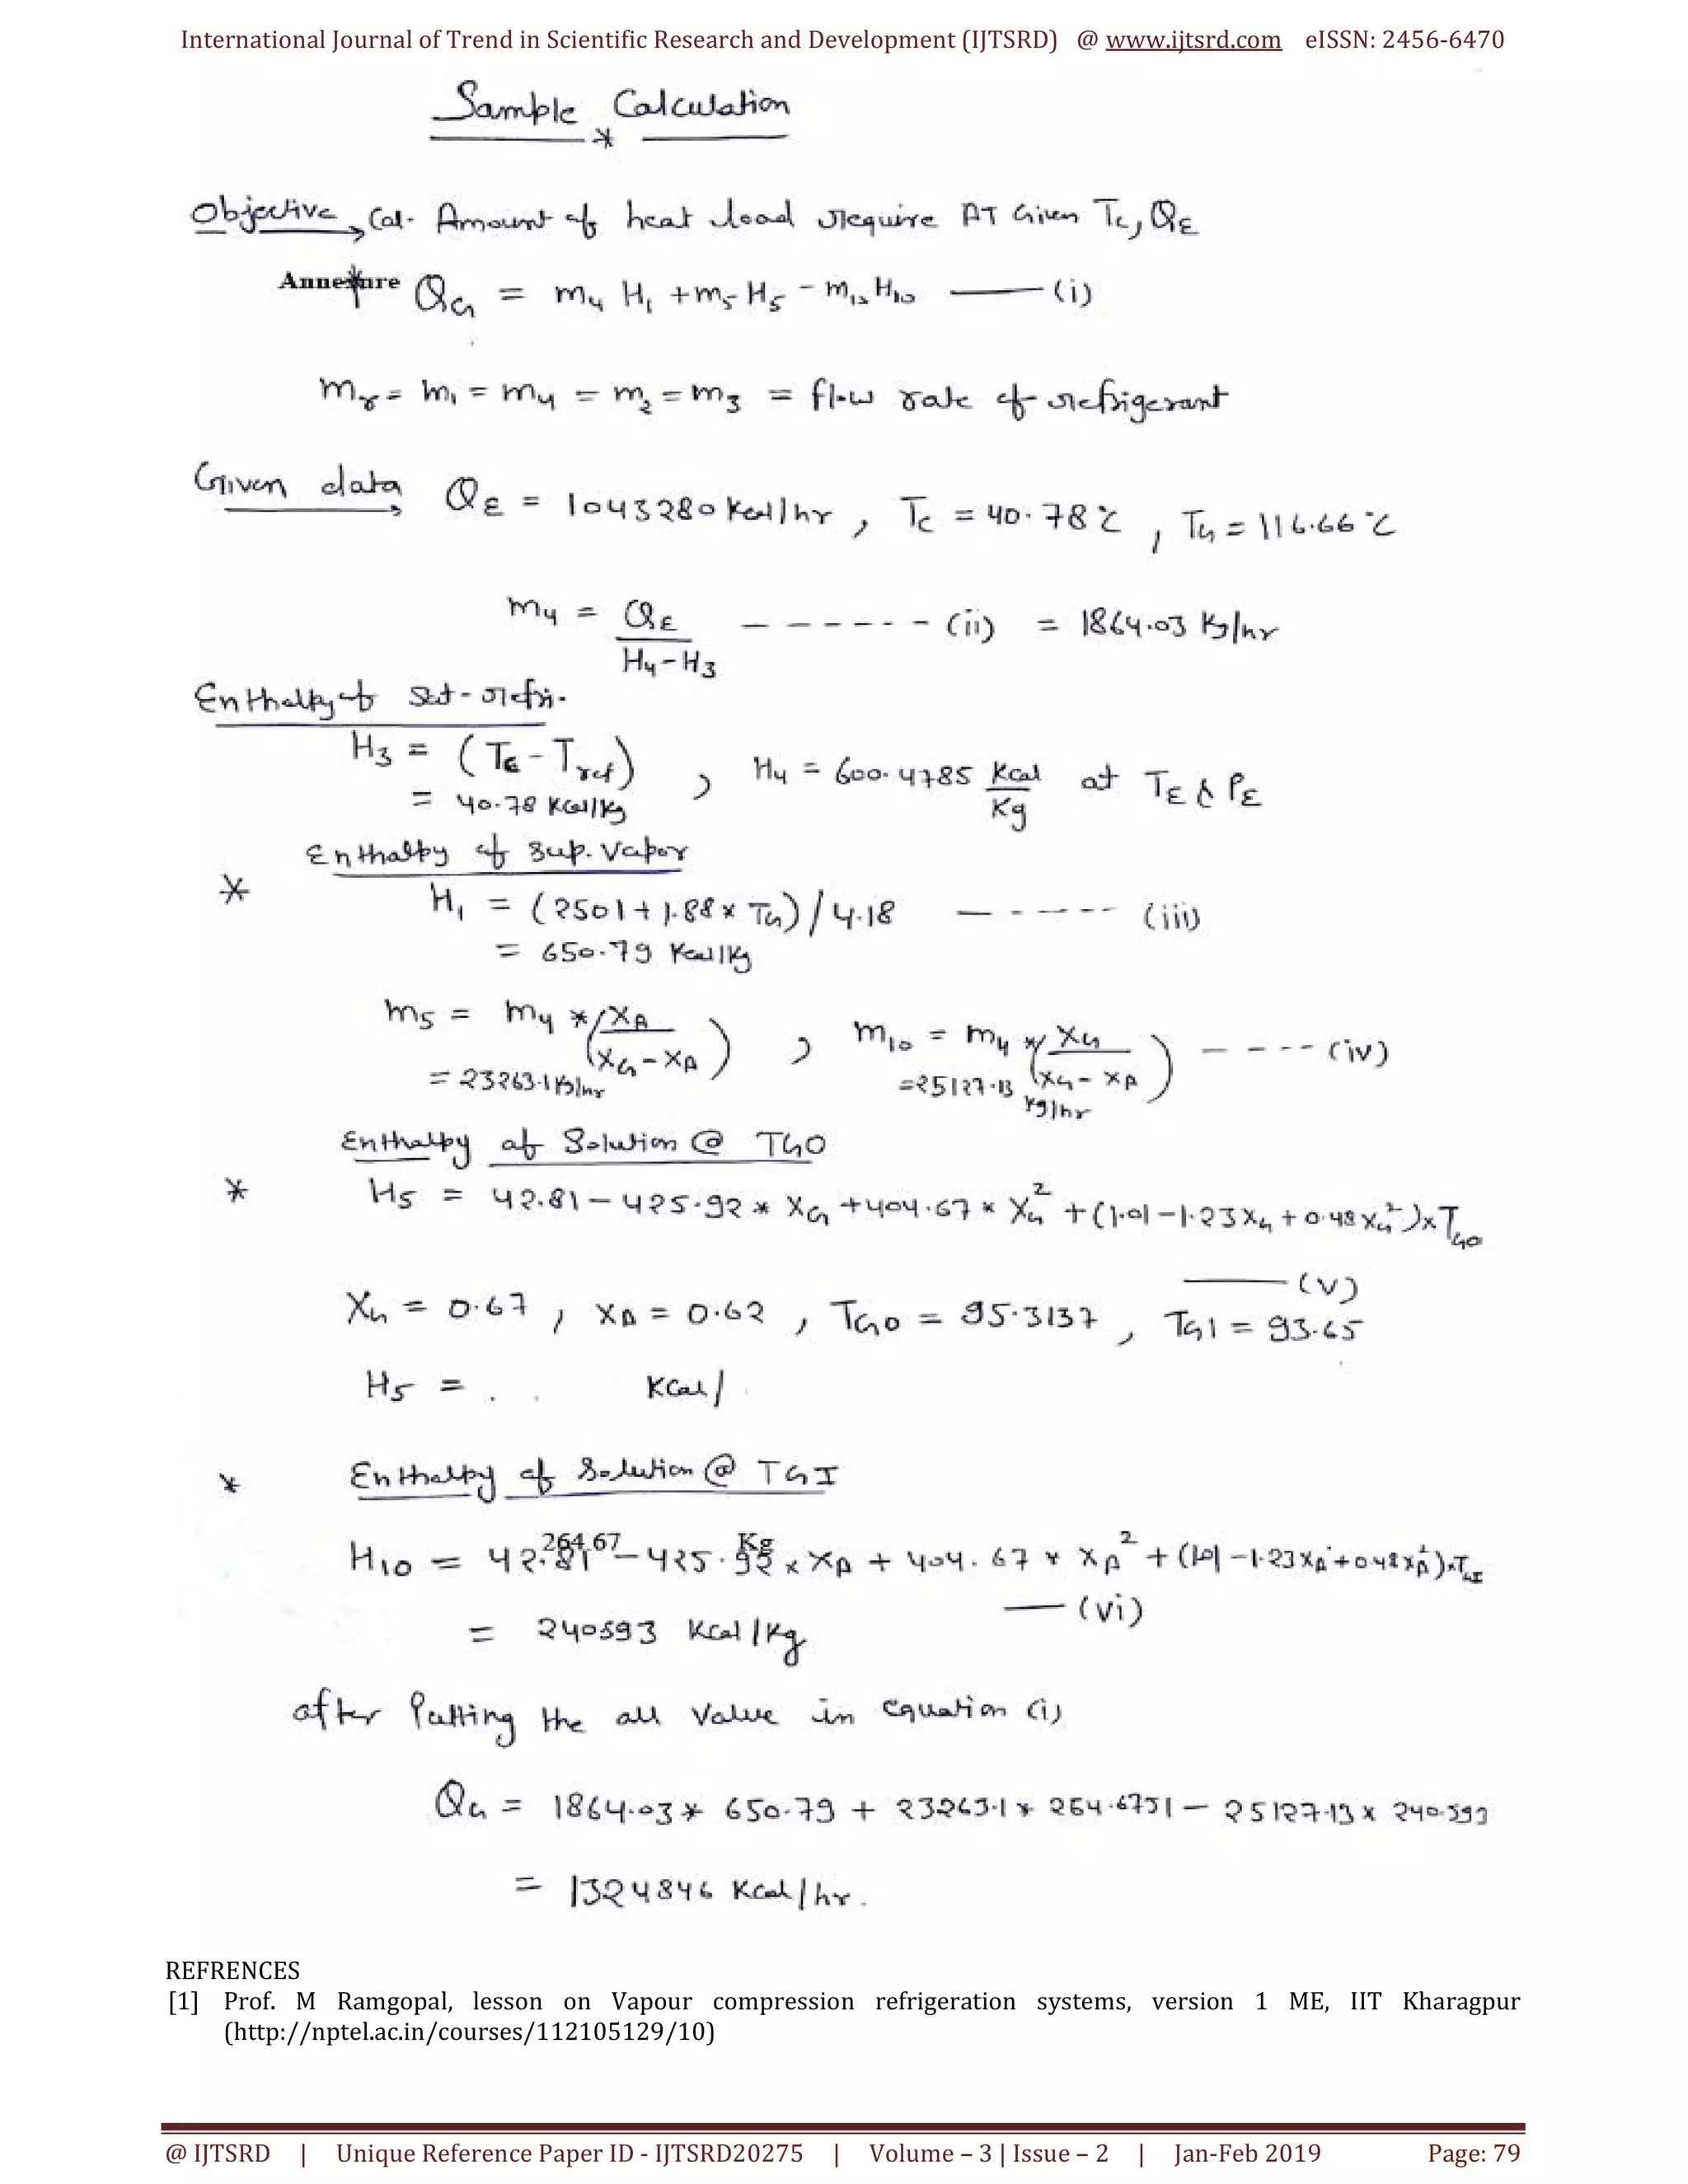 International Journal of Trend in Scientific Research and Development (IJTSRD) @ www.ijtsrd.com eISSN: 2456-6470
Sample Calculation
*
Objective → Cal. Amount of heat load require AT Given Tc, QE
Annexure QG = m4 H1 + m5 H5 - m10 H10 —— (i)
mr = m1 = m4 = m2 = m3 = flow rate of refrigerant
Given data → QE = 1043280 Kcal/hr , Tc = 40.78 °C , TG = 116.66 °C
m4 = QE / (H4 - H3) - - - - - - (ii) = 1864.03 Kg/hr
Enthalpy of sat-refri.
H3 = (Tc - Tref) , H4 = 600.4785 Kcal/Kg at TE & PE
= 40.78 Kcal/Kg
Enthalpy of Sup. Vapor
* H1 = (2501 + 1.88 x TG) / 4.18 - - - - - (iii)
= 650.79 Kcal/Kg
m5 = m4 * (XA / (XG - XA)) , m10 = m4 * (XG / (XG - XA)) - - - - (iv)
= 23263.1 Kg/hr = 25127.13 Kg/hr
Enthalpy of Solution @ TGO
* H5 = 42.81 - 425.92 * XG + 404.67 * XG² + (1.01 - 1.23 XG + 0.48 XG²) x TGO
—— (v)
XG = 0.67 , XA = 0.62 , TGO = 95.3137 , TGI = 93.65
H5 = . . Kcal/
* Enthalpy of Solution @ TGI
264.67 Kg
H10 = 42.81 - 425.92 x XA + 404.67 * XA² + (1.01 - 1.23 XA + 0.48 XA²) * TGI
—— (vi)
= 240593 Kcal/Kg
after Putting the all Value in equation (i)
QG = 1864.03 * 650.79 + 23263.1 * 264.6751 - 25127.13 x 240.593
= 1324846 Kcal/hr.
REFRENCES
[1] Prof. M Ramgopal, lesson on Vapour compression refrigeration systems, version 1 ME, IIT Kharagpur
(http://nptel.ac.in/courses/112105129/10)
@ IJTSRD | Unique Reference Paper ID - IJTSRD20275 | Volume – 3 | Issue – 2 | Jan-Feb 2019 Page: 79